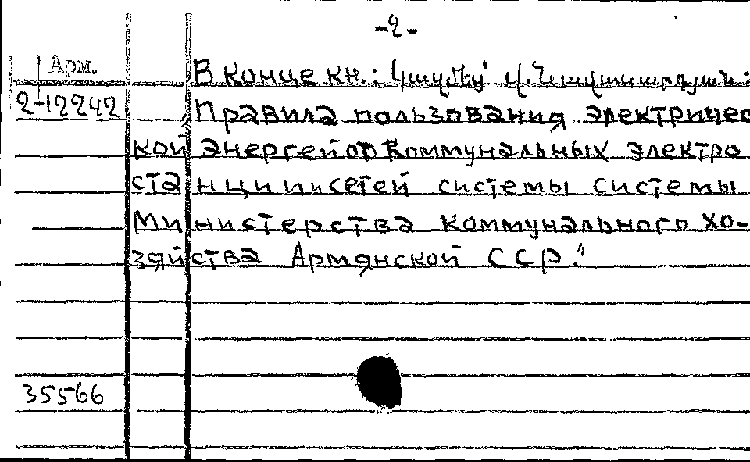 -2-
Арм.
В конце кн.: Կազմեց՝ Վ. Նավասարդյան:
2-12242
Правила пользования электричес
кой энергей от коммунальных электро
станции и сетей системы системы
Министерства коммунального хо-
зяйства Армянской ССР."
35566